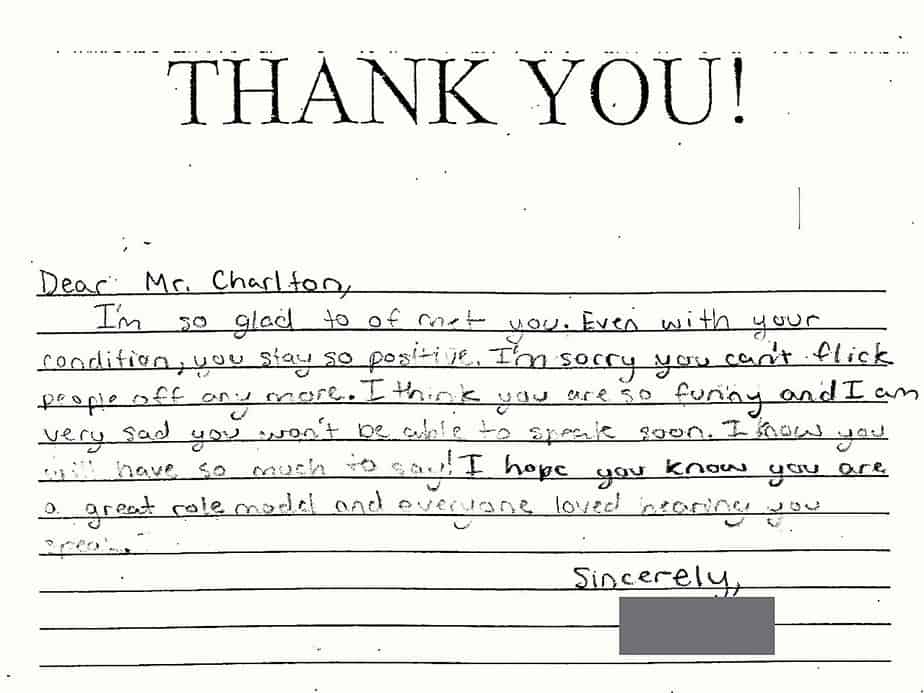 THANK YOU!
Dear Mr. Charlton,
I'm so glad to of met you. Even with your
condition, you stay so positive. I'm sorry you can't flick
people off any more. I think you are so funny and I am
very sad you won't be able to speak soon. I know you
will have so much to say! I hope you know you are
a great role model and everyone loved hearing you
speak.
Sincerely,